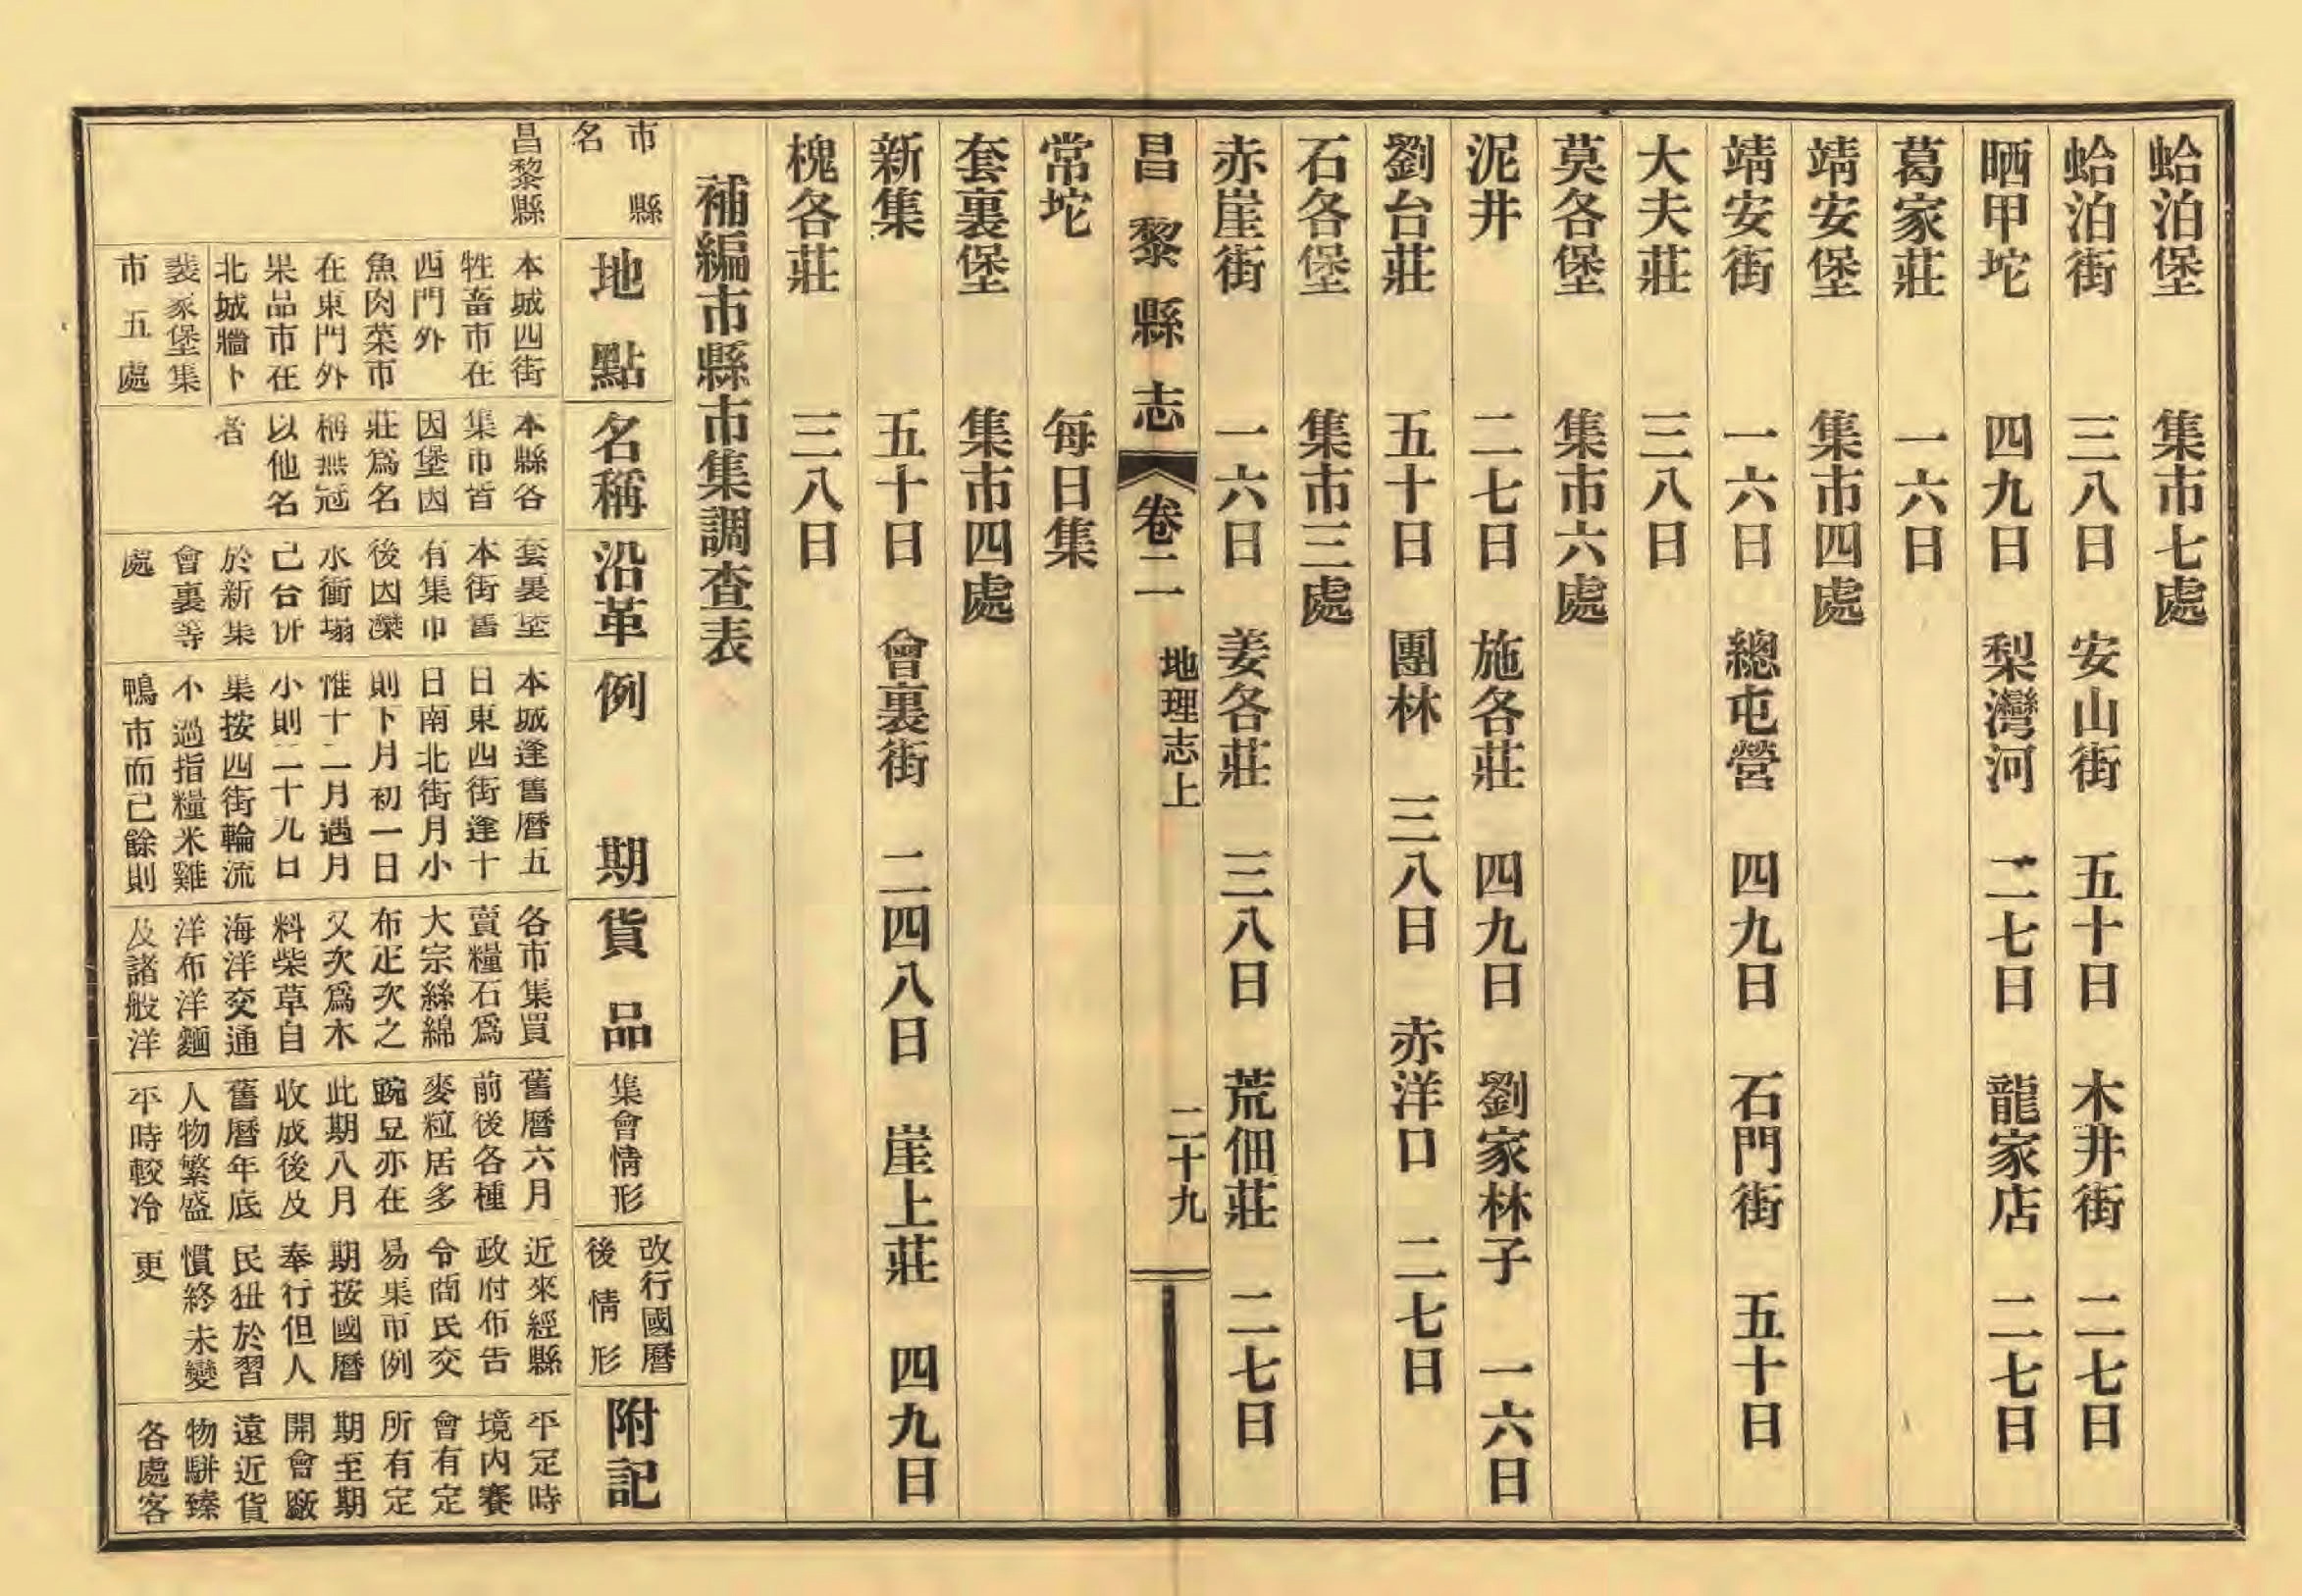 蛤泊堡 集市七處
蛤泊街 三八日 安山街 五十日 木井街 二七日
晒甲坨 四九日 梨灣河 二七日 龍家店 二七日
葛家莊 一六日
靖安堡 集市四處
靖安街 一六日 總屯營 四九日 石門街 五十日
大夫莊 三八日
莫各堡 集市六處
泥井 二七日 施各莊 四九日 劉家林子 一六日
劉台莊 五十日 團林 三八日 赤洋口 二七日
石各堡 集市三處
赤崖街 一六日 姜各莊 三八日 荒佃莊 二七日
昌黎縣志 卷二 地理志上 二十九
常坨 每日集
套裏堡 集市四處
新集 五十日 會裏街 二四八日 崖上莊 四九日
槐各莊 三八日
補編市縣市集調查表
市縣
名
昌黎縣
地點
本城四街
牲畜市在
西門外
魚肉菜市
在東門外
果品市在
北城牆下
裴家堡集
市五處
名稱
本縣各
集市皆
因堡因
莊爲名
稱無冠
以他名
者
沿革
套裏堡
本街舊
有集市
後因灤
水衝塌
已合併
於新集
會裏等
處
例期
本城逢舊曆五
日東西街逢十
日南北街月小
則下月初一日
惟十二月遇月
小則二十九日
集按四街輪流
不過指糧米雞
鴨市而已餘則
貨品
各市集買
賣糧石爲
大宗絲綿
布疋次之
又次爲木
料柴草自
海洋交通
洋布洋麵
及諸般洋
集會情形
舊曆六月
前後各種
麥粒居多
豌豆亦在
此期八月
收成後及
舊曆年底
人物繁盛
平時較冷
改行國曆
後情形
近來經縣
政府布告
令商民交
易集市例
期按國曆
奉行但人
民狃於習
慣終未變
更
附記
平定時
境內賽
會有定
所有定
期至期
開會廠
遠近貨
物駢臻
各處客